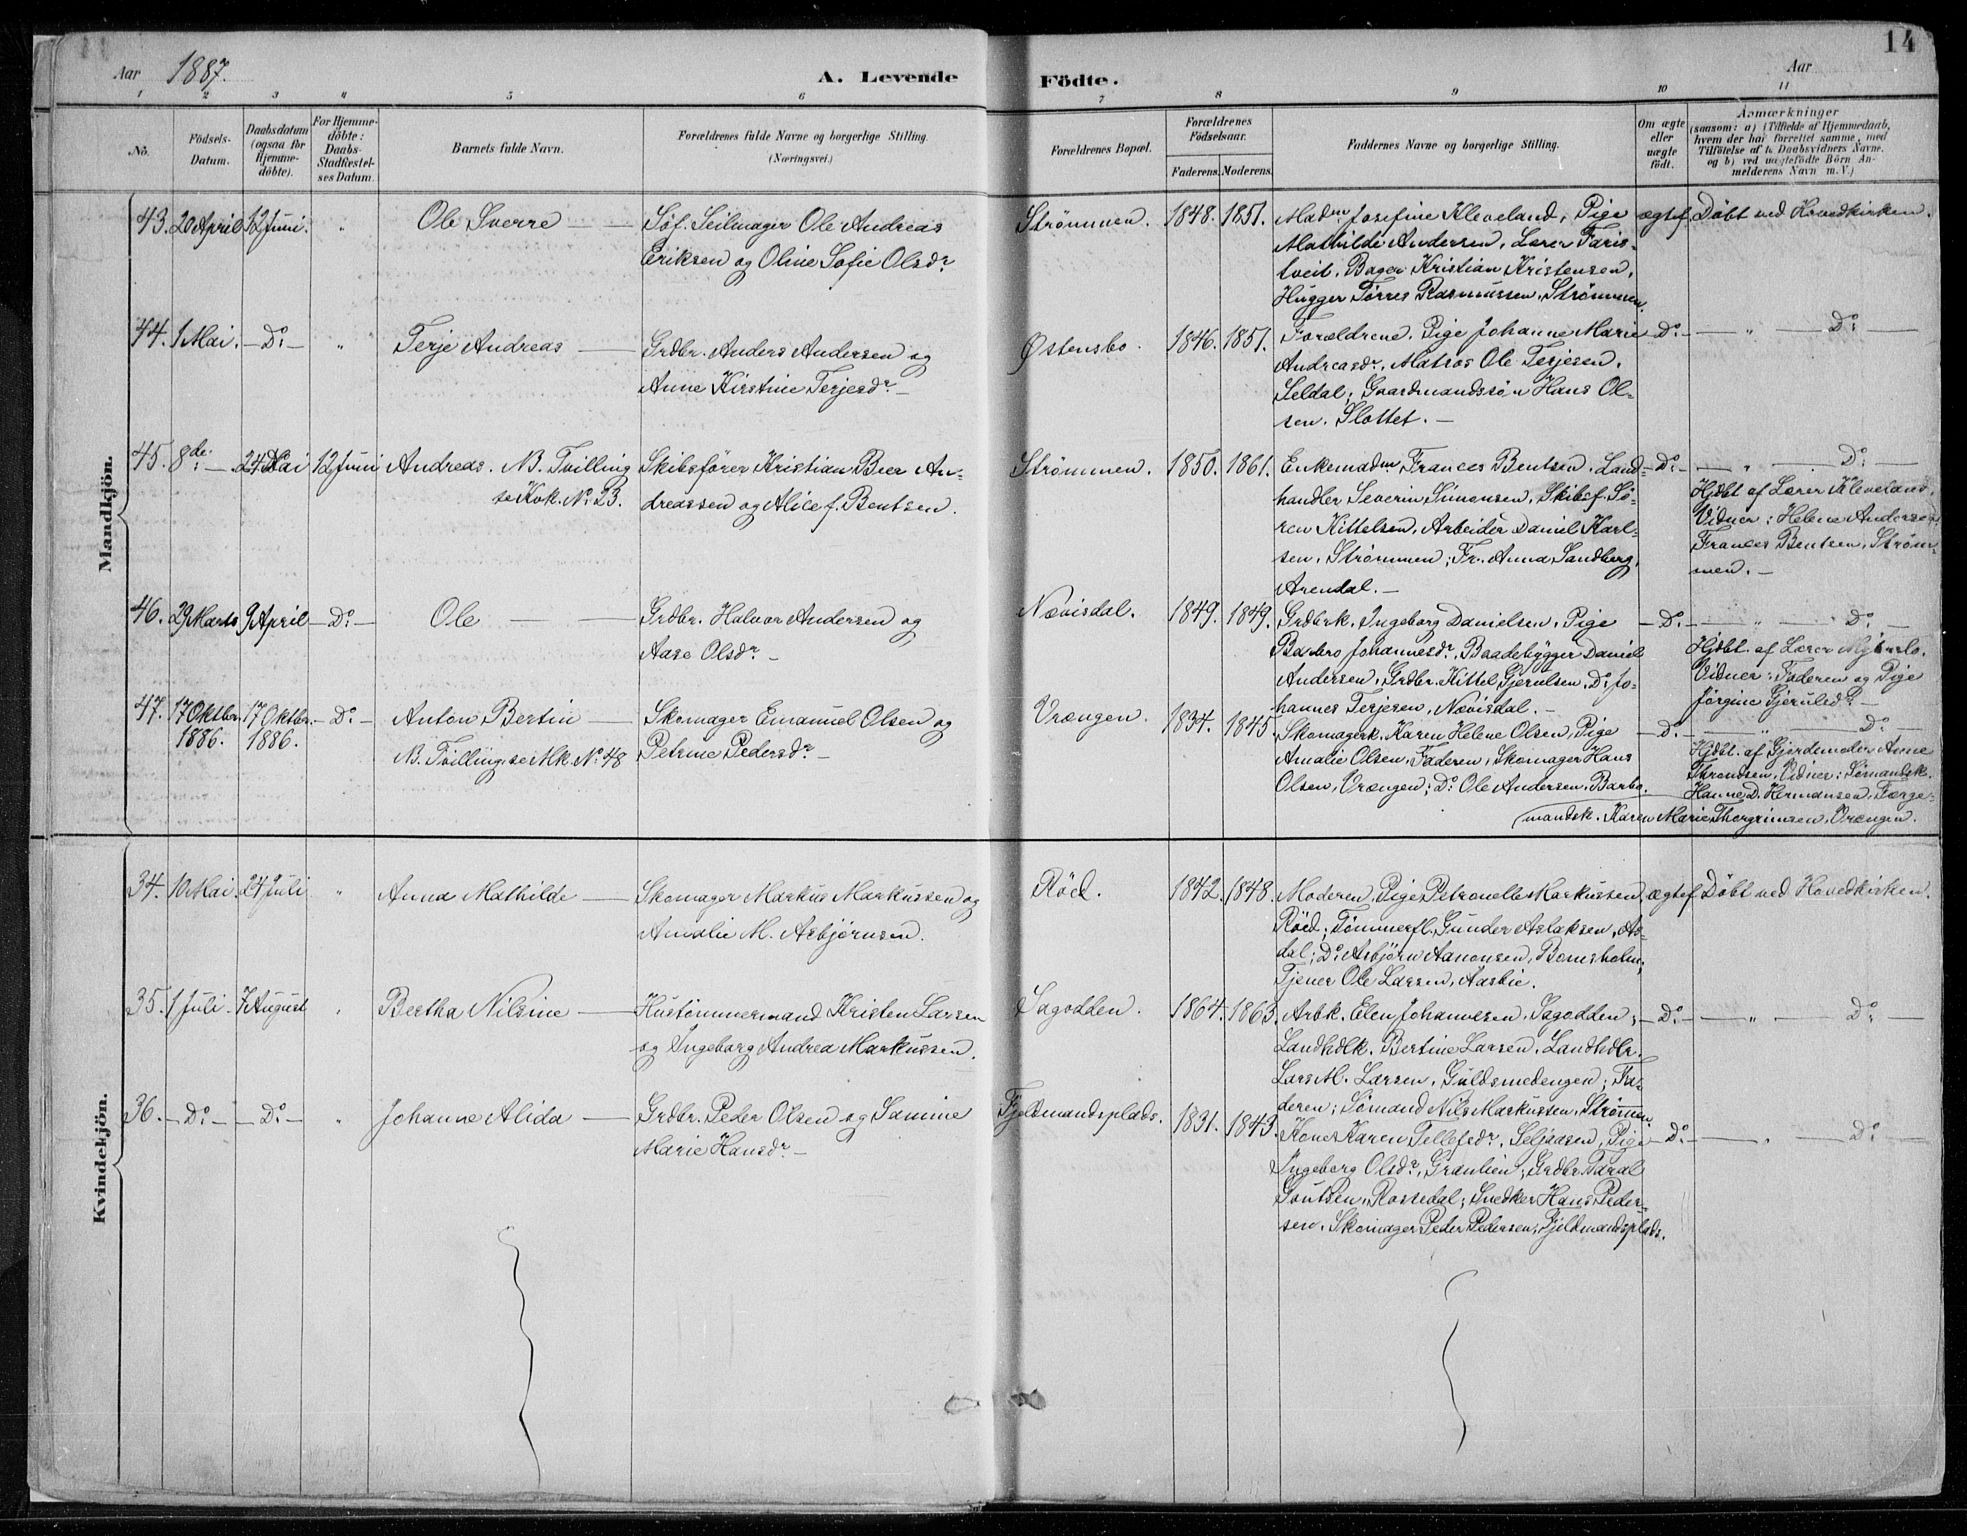 14
Aar 1887. A. Levende Födte. Aar
1 2 3 4 5 6 7 8 9 10 11
No.
Födsels-
Datum.
Daabsdatum
(ogsaa for
Hjemme-
döbte).
For Hjemme-
döbte:
Daabs-
Stadfæstel-
ses Datum.
Barnets fulde Navn.
Forældrenes fulde Navne og borgerlige Stilling.
(Næringsvei.)
Forældrenes Bopæl.
Forældrenes
Födselsaar.
Faderens. Moderens.
Faddernes Navne og borgerlige Stilling.
Om ægte
eller
uægte
födt.
Anmærkninger
(saasom: a) i Tilfælde af Hjemmedaab,
hvem der har forrettet samme, med
Tilföielse af to Daabsvidners Navne,
og b) ved uægtefödte Börn An-
melderens Navn m. V.)
Mandkjön.
43. 20 April 12 Juni. " Ole Sverre
Söf. Seilmager Ole Andreas
Eriksen og Oline Sofie Olsdr.
Strømmen. 1848. 1851.
Madm. Josefine Kleveland, Pige
Mathilde Andersen, Lærer Faris-
tveit, Bager Kristian Kristensen,
Hugger Tørres Rasmussen, Strømmen.
ægtef. Döbt ved Hovedkirken.
44. 1 Mai. — Do: — " Terje Andreas
Grdbr. Anders Andersen og
Anne Kirstine Terjesdr. —
Østensbo. 1846. 1851.
Forældrene, Pige Johanne Marie
Andreasdr., Matros Ole Terjesen,
Seldal; Gaardmandssøn Hans Ol-
sen, Slottet. —
Do: — " — Do: —
45. 8de: — 24 Mai 12 Juni Andreas. NB. Tvilling
se Kvk. No. 23.
Skibsfører Kristian Bier An-
dreassen og Alice f. Bentsen.
Strømmen. 1850. 1861.
Enkemadm. Frances Bentsen, Land-
handler Severin Simonsen, Skibsf. Sö-
ren Kittelsen, Arbeider Daniel Karl-
sen, Strømmen; Fr. Anna Sandberg,
Arendal. —
Do: — " — Do: —
Hjdbt. af Lærer Kleveland,
Vidner: Helene Andersen,
Frances Bentsen, Strøm-
men. —
46. 29 Marts 9 April — Do: — Ole
Grdbr. Halvor Andersen og
Aase Olsdr. —
Nævisdal. 1849. 1849.
Grdbrk. Ingeborg Danielsen, Pige
Barbro Johannesdr., Baadebygger Daniel
Andersen, Grdbr. Kittel Gjerulsen, Do: Jo-
hannes Terjesen, Nævisdal. —
— Do: — " — Do: —
Hjdbt. af Lærer
Vidner: Faderen og Pige
Jørgine Gjerulsdr. —
47. 17 Oktbr. 1886. 17 Oktbr. 1886. — Do: — Anton Bertin
NB. Tvilling, se Mk. No. 48
Skomager Emanuel Olsen og
Petrine Pedersdr. —
Vrængen. 1834. 1845.
Skomagerk. Karen Helene Olsen, Pige
Amalie Olsen, Faderen, Skomager Hans
Olsen, Vrængen; Do: Ole Andersen, Barbo.
— Do: — " — Do: —
Hjdbt. af Gjordemoder Anne
Throndsen, Vidner: Sømandsk.
Hanne D. Hermansen, Færge-
mandsk. Karen Marie Thorgrimsen, Vrængen.
Kvindekjön.
34. 10 Mai. 24 Juli " Anna Mathilde
Skomager Markus Markussen og
Amalie M. Asbjørnsen.
Röed. 1842. 1848.
Moderen, Pige Petronelle Markussen,
Röed; Tømmerfl. Gunder Aslaksen, As-
dal; Do: Asbjørn Aanonsen, Bomsholm;
Tjener Ole Larsen, Aasbie.
ægtef. Döbt ved Hovedkirken.
35. 1 Juli. 7 August " Bertha Nilsine
Hustømmermand Kristen Larsen
og Ingeborg Andrea Markussen.
Sagodden. 1864. 1863.
Arbk. Elen Johannesen, Sagodden;
Landhdlk. Bertine Larsen, Landhdlr.
Lars M. Larsen, Guldsmedengen; Fa-
deren; Sømand Nils Markussen, Strømmen.
— Do: — " — Do: —
36. — Do: — — Do: — " Johanne Alida
Grdbr. Peder Olsen og Samine
Marie Hansdr. —
Fjeldmandsplads. 1831. 1843.
Kone Karen Tellefsdr., Seljeaasen, Pige
Ingeborg Olsdr., Grønlien; Grdbr. Taral
Gautsen, Rossedal; Snedker Hans Peder-
sen, Skomager Peder Pedersen, Fjeldmandsplads.
— Do: — " — Do: —